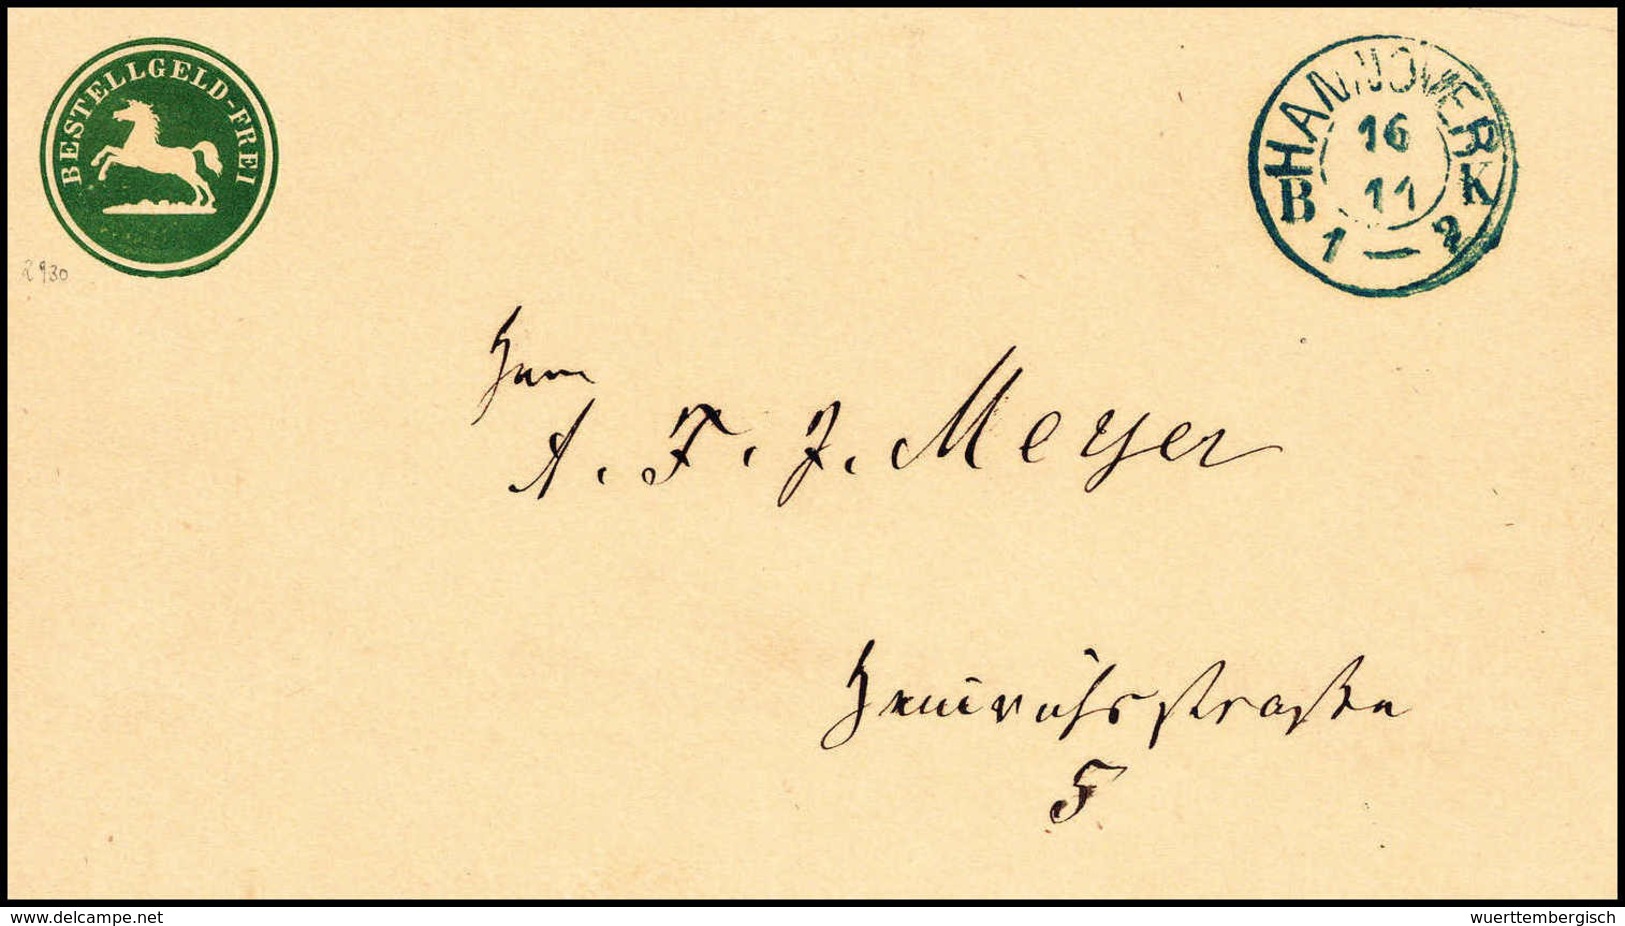 BESTELLGELD-FREI
HANNOVER
16
11
B K
1 — 2
2930
Herrn
A. F. J. Meyer
Heinrichsstraße
5
www.delcampe.net
wuerttembergisch